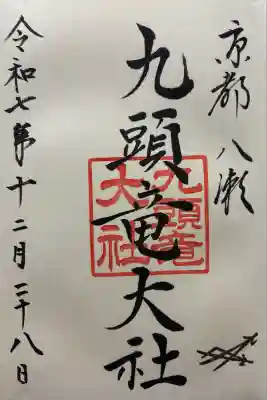 京都八瀬
九頭竜大社
九頭竜
大社
令和七年十二月二十八日